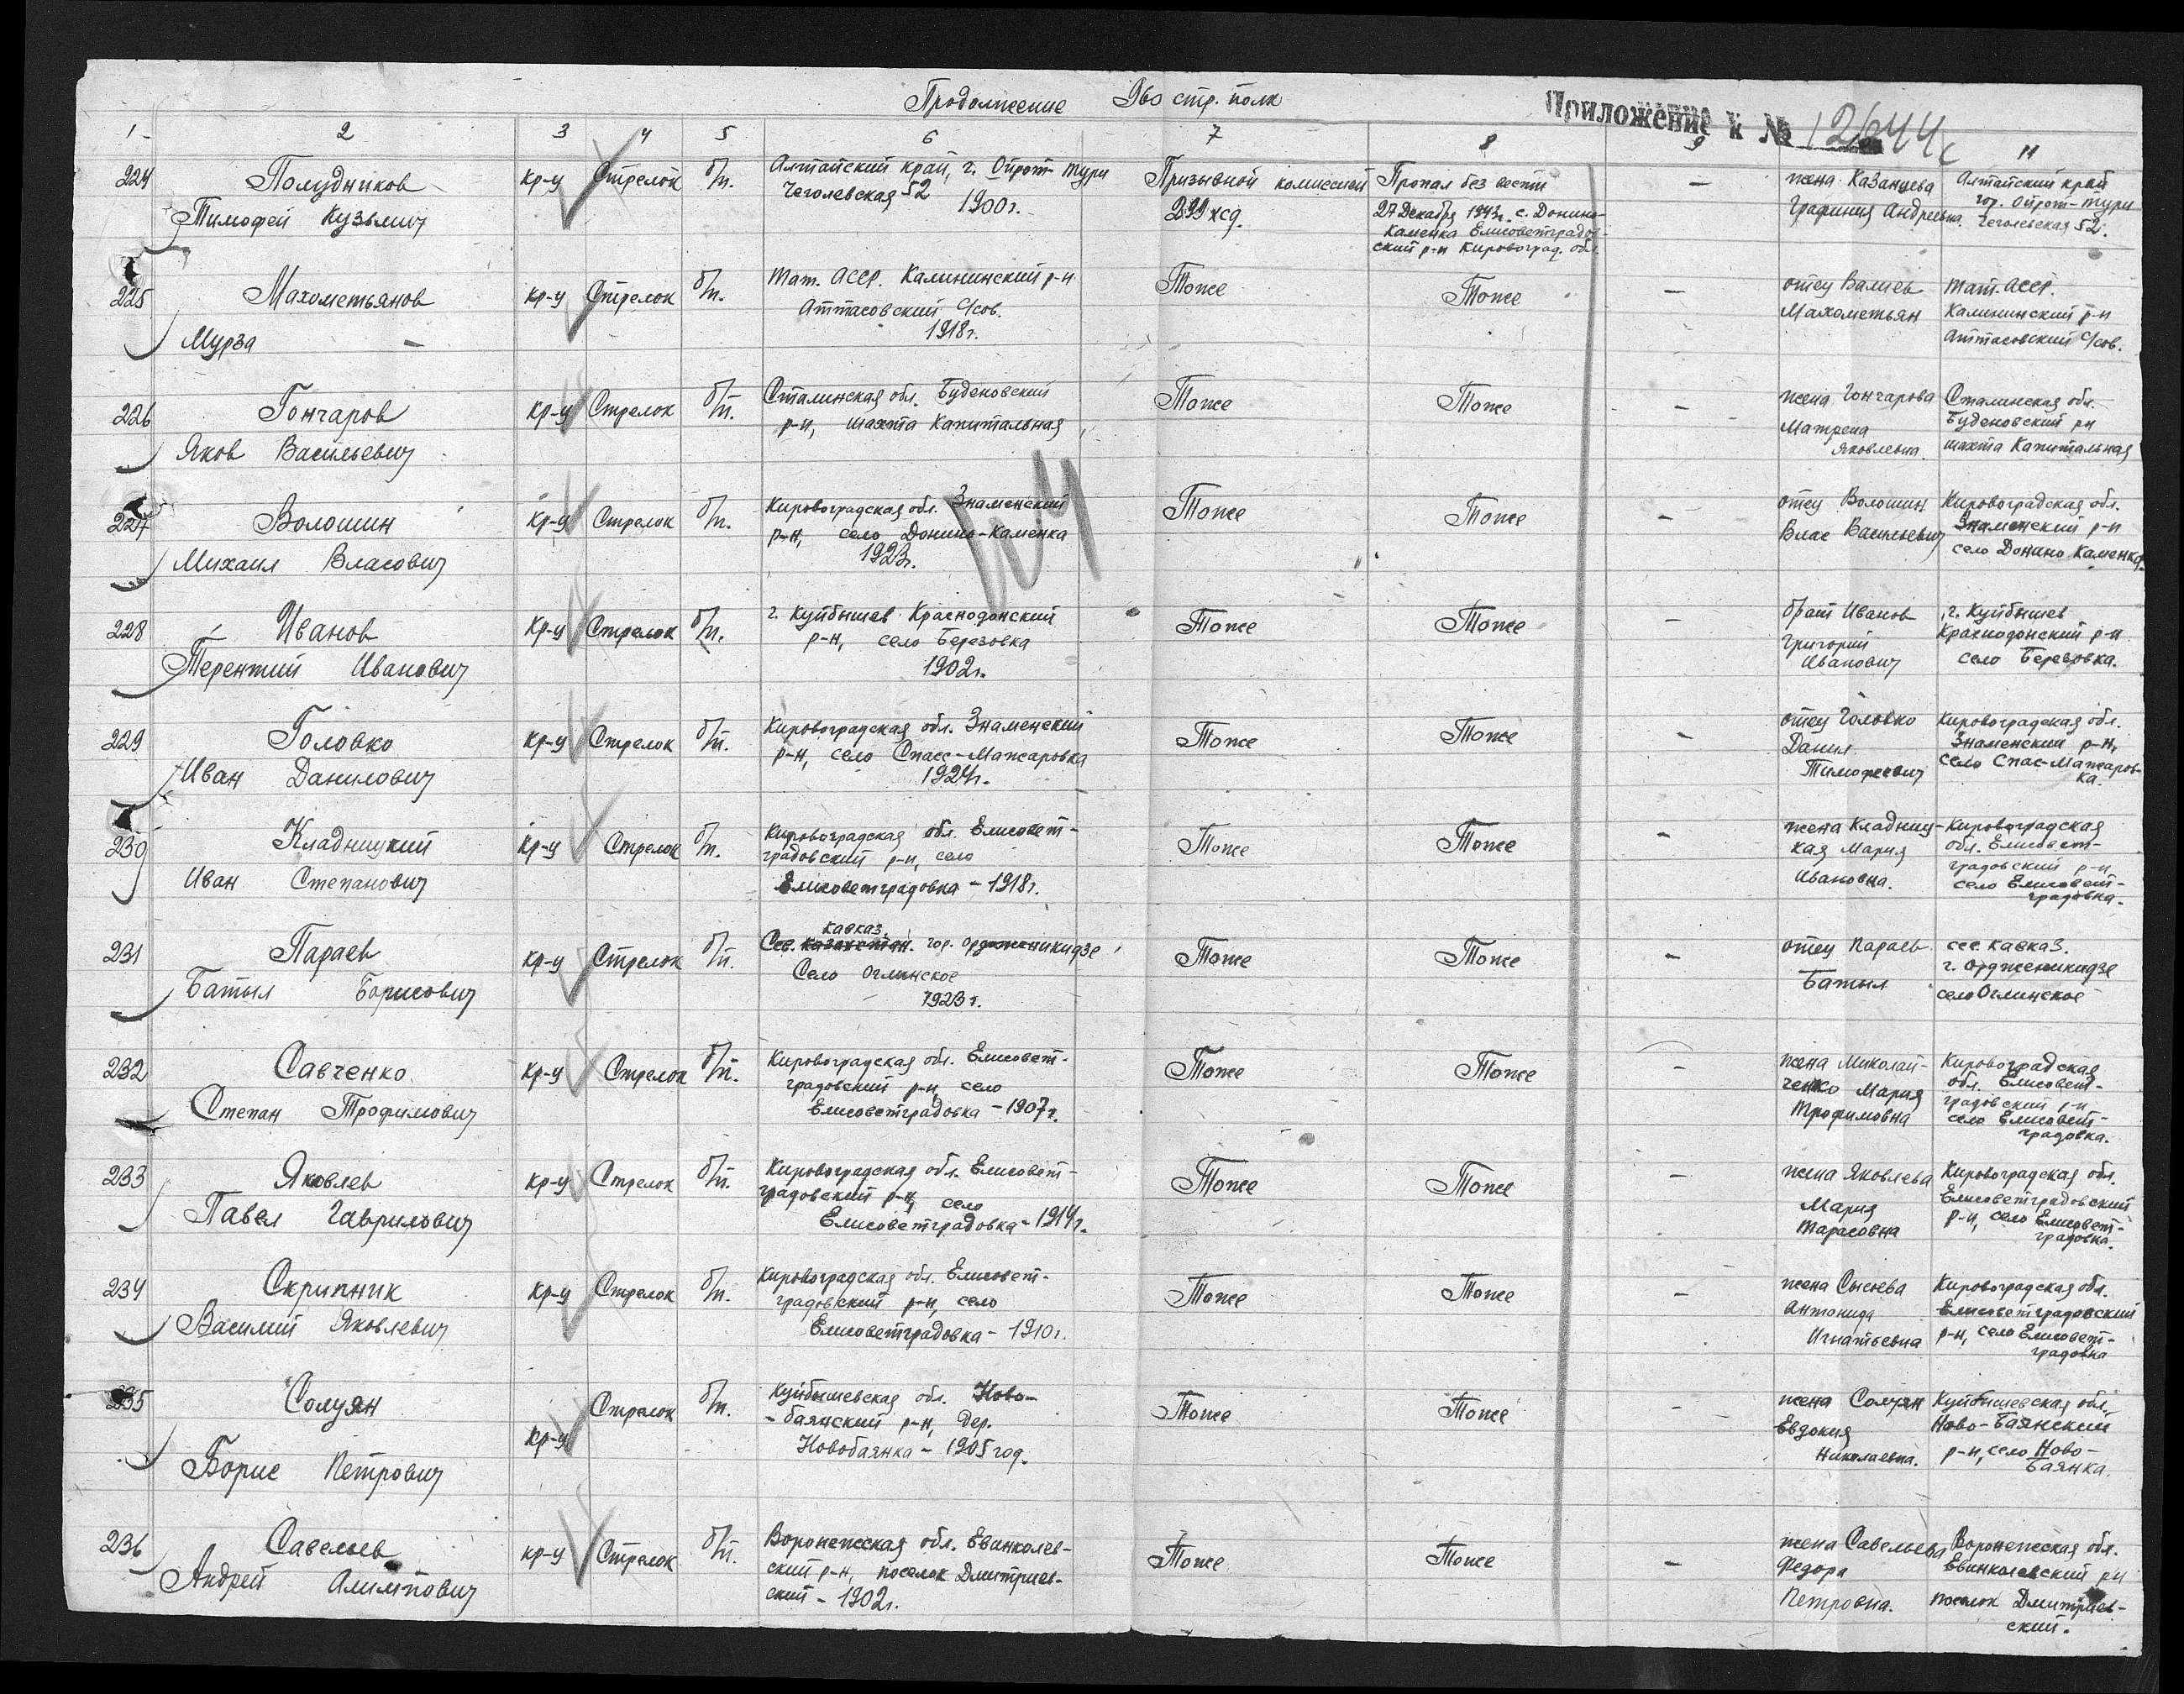 Продолжение 960 стр. полк
Приложение к № 12644с
1 2 3 4 5 6 7 8 9 11
224 Полудников Тимофей Кузьмич
кр-ц Стрелок б/п.
Алтайский край, г. Ойрот-Тури
Чеголевская 52 1900г.
Призывной комиссией
299 хсд.
Пропал без вести
27 Декабря 1943г. с. Донино-
Каменка Елисоветградов-
ский р-н Кировоград. обл.
–
жена Казанцева
Графиния Андреевна.
Алтайский край
гор. Ойрот-тури
Чеголевская 52.
225 Махометьянов
Мурза –
кр-ц Стрелок б/п.
Тат. АССР. Калининский р-н
Аттасовский С/сов.
1918г.
Тоже
Тоже
–
отец Валиев
Махометьян
Тат. АССР.
Калининский р-н
Аттасовский С/сов.
226 Гончаров
Яков Васильевич
кр-ц Стрелок б/п.
Сталинская обл. Буденовский
р-н, шахта Капитальная
Тоже
Тоже
–
жена Гончарова
Матрена
Яковлевна.
Сталинская обл.
Буденовский рн
шахта Капитальная
227 Волошин
Михаил Власович
кр-ц Стрелок б/п.
Кировоградская обл. Знаменский
р-н, село Донино-Каменка
1923г.
Тоже
Тоже
–
отец Волошин
Влас Васильевич
Кировоградская обл.
Знаменский р-н
село Донино Каменка.
228 Иванов
Терентий Иванович
кр-ц Стрелок б/п.
г. Куйбышев Краснодонский
р-н, село Березовка
1902г.
Тоже
Тоже
–
брат Иванов
Григорий
Иванович
г. Куйбышев
Краснодонский р-н
село Березовка.
229 Головко
Иван Данилович
кр-ц Стрелок б/п.
Кировоградская обл. Знаменский
р-н, село Спасс-Мажаровка
1924г.
Тоже
Тоже
–
отец Головко
Данил
Тимофеевич
Кировоградская обл.
Знаменский р-н,
село Спас-Мажаров-
ка.
230 Кладницкий
Иван Степанович
кр-ц Стрелок б/п.
Кировоградская обл. Елисовет-
градовский р-н, село
Елисоветградовка - 1918г.
Тоже
Тоже
–
жена Кладниц-
кая Мария
Ивановна.
Кировоградская
обл. Елисовет-
градовский р-н
село Елисовет-
градовка.
231 Параев
Батыл Борисович
кр-ц Стрелок б/п.
кавказ.
Сев. казахстан. гор. Орджоникидзе
Село Оглинское
1923г.
Тоже
Тоже
–
отец Параев
Батыл
сев. кавказ.
г. Орджоникидзе
село Оглинское
232 Савченко
Степан Трофимович
кр-ц Стрелок б/п.
Кировоградская обл. Елисовет-
градовский р-н, село
Елисоветградовка - 1907г.
Тоже
Тоже
–
жена Миколай-
ченко Мария
Трофимовна
Кировоградская
обл. Елисовет-
градовский р-н
село Елисовет-
градовка.
233 Яковлев
Павел Гаврилович
кр-ц Стрелок б/п.
Кировоградская обл. Елисовет-
градовский р-н, село
Елисоветградовка - 1914г.
Тоже
Тоже
–
жена Яковлева
Мария
Тарасовна
Кировоградская обл.
Елисоветградовский
р-н, село Елисовет-
градовка.
234 Скрипник
Василий Яковлевич
кр-ц Стрелок б/п.
Кировоградская обл. Елисовет-
градовский р-н, село
Елисоветградовка - 1910г.
Тоже
Тоже
–
жена Сысоева
Антонида
Игнатьевна
Кировоградская обл.
Елисоветградовский
р-н, село Елисовет-
градовка
235 Солуян
Борис Петрович
кр-ц Стрелок б/п.
Куйбышевская обл. Ново-
-баянский р-н, дер.
Новобаянка - 1905 год.
Тоже
Тоже
–
жена Солуян
Евдокия
Николаевна.
Куйбышевская обл.
Ново-Баянский
р-н, село Ново-
Баянка.
236 Савельев
Андрей Алимпович
кр-ц Стрелок б/п.
Воронежская обл. Евинколев-
ский р-н, поселок Дмитриев-
ский - 1902г.
Тоже
Тоже
–
жена Савельева
Федора
Петровна.
Воронежская обл.
Евинколевский рн
поселок Дмитриев-
ский.